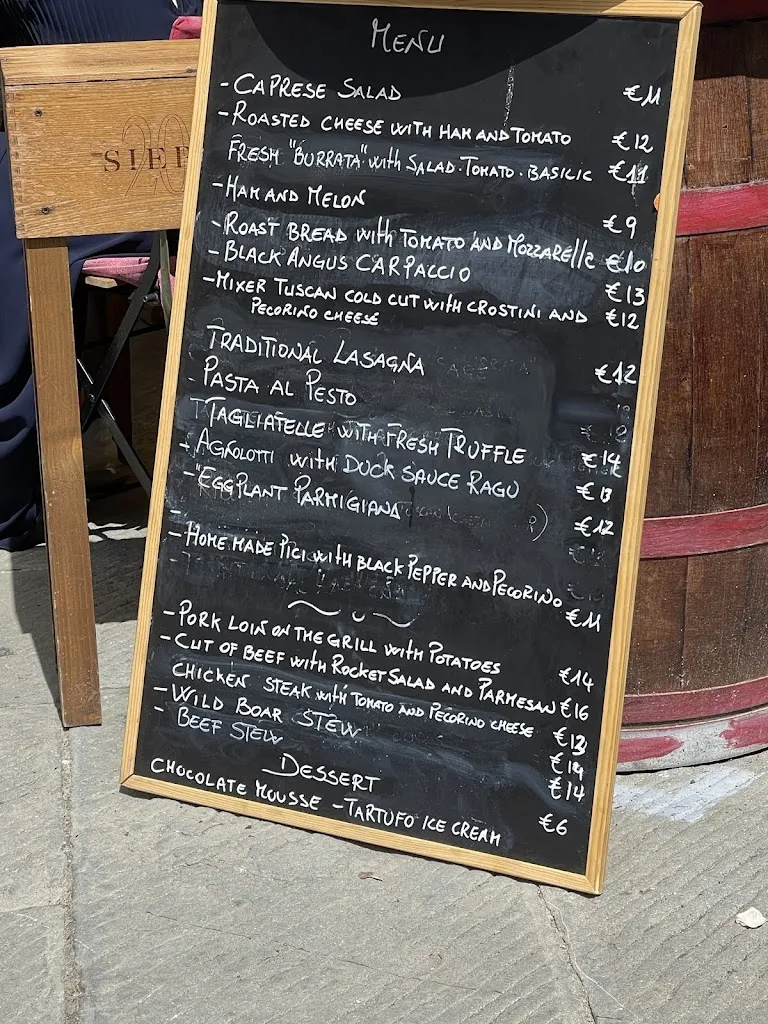 MENU
- CAPRESE SALAD €11
- ROASTED CHEESE WITH HAM AND TOMATO €12
FRESH "BURRATA" with SALAD. TOMATO. BASILIC €11
- HAM AND MELON €9
- ROAST BREAD with TOMATO AND MOZZARELLE €10
- BLACK ANGUS CARPACCIO €13
- MIXER TUSCAN COLD CUT WITH CROSTINI AND €12
PECORINO CHEESE
TRADITIONAL LASAGNA €12
- PASTA AL PESTO
TAGLIATELLE WITH FRESH TRUFFLE €14
- AGNOLOTTI WITH DUCK SAUCE RAGU €13
- "EGGPLANT PARMIGIANA €12
- HOME MADE PICI WITH BLACK PEPPER AND PECORINO €11
- PORK LOIN ON THE GRILL WITH POTATOES €14
- CUT OF BEEF WITH ROCKET SALAD AND PARMESAN €16
CHICKEN STEAK WITH TOMATO AND PECORINO CHEESE €13
- WILD BOAR STEW €14
- BEEF STEW €14
DESSERT
CHOCOLATE MOUSSE - TARTUFO ICE CREAM €6